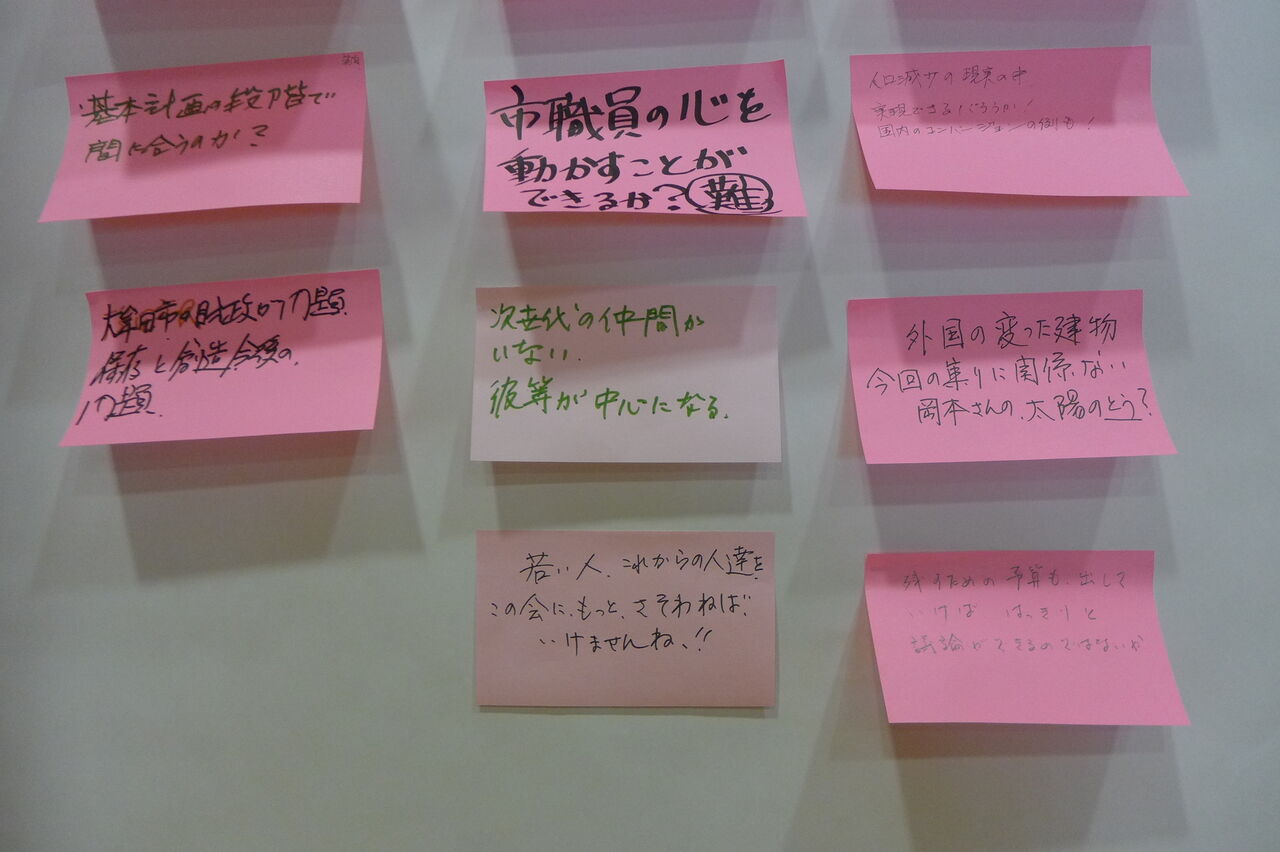 基本計画の段階で
間に合うのか?
大牟田市の財政の問題
保存と創造今後の
問題
市職員の心を
動かすことが
できるか?難
次世代の仲間が
いない.
彼等が中心になる.
若い人、これからの人達を
この会に、もっと、さそわねば
いけませんね、!!
人口減少の現実の中
実現できるだろうか!
国内のコンバージョンの例も!
外国の変った建物
今回の集りに関係ない
岡本さんの、太陽のとう?
残すための予算も、出して
いけば はっきりと
議論ができるのではないか